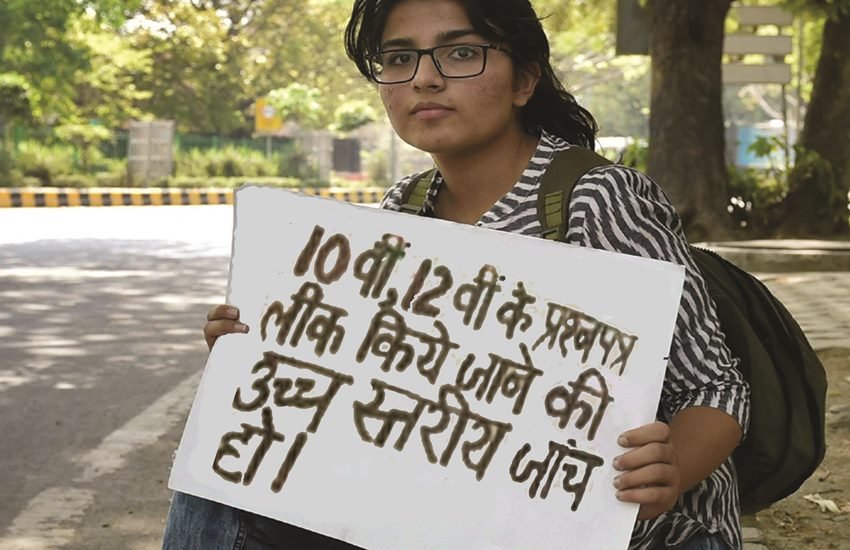 10 वीं, 12 वीं के प्रश्नपत्र
लीक किये जाने की
उच्च स्तरीय जांच
हो।